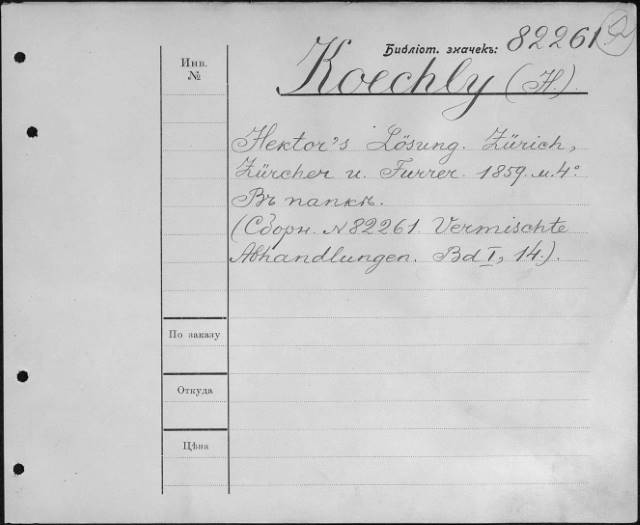 Библіот. значекъ: 82261
Инв.
№
Koechly (H.).
Hektor's Lösung. Zürich,
Zürcher u. Furrer. 1859. м. 4°.
Въ папкѣ.
(Сборн. N 82261. Vermischte
Abhandlungen. Bd I, 14.).
По заказу
Откуда
Цѣна